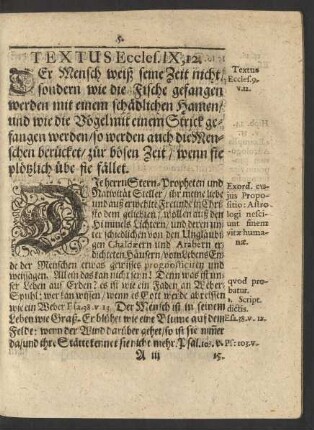 5.
TEXTUS Eccles. IX, 12.
DEr Mensch weiß seine Zeit nicht/
sondern wie die Fische gefangen
werden mit einem schädlichen Hamen/
und wie die Vögel mit einem Strick ge-
fangen werden/ so werden auch die Men-
schen berücket/ zur bösen Zeit/ wenn sie
plötzlich übe sie fället.
Textus
Eccles. 9.
v. 12.
DIe Stern-Propheten und
Nativität-Steller/ ihr meine liebe
und auserwehlte Freunde in Chri-
sto dem geliebten/ wollen auß den
Himmels Lichtern/ und deren un-
terschiedlichen von den Unglaubi-
gen Chaldæern und Arabern er-
dichteten Häusern/ vom Lebens En-
de der Menschen etwas gewisses prognosticiren und
weissagen. Allein das tan nicht seyn! Denn was ist un-
ser Leben auf Erden? es ist wie ein Faden an Weber-
Spuhl; wer kan wissen/ wenn es Gott werde abreissen
wie ein Weber Esa. 38. v. 12. Der Mensch ist in seinem
Leben wie Graß. Er blühet wie eine Blume auf dem
Felde: wenn der Wind darüber gehet/ so ist sie nimer
da/ und ihre Stätte kennet sie nicht mehr. Psal. 103. v.
Exord. cu-
jus Propo-
sitio: Astro-
logi nesci-
unt finem
vitæ huma-
næ.
qvod pro-
batur.
1. Script.
dictis.
Esa. 38. v. 12.
Ps: 103. v.
A iii
15.